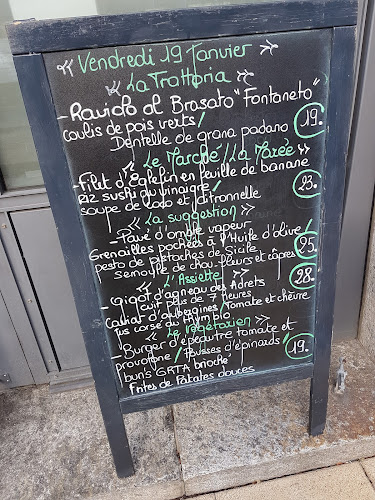 « Vendredi 19 Janvier »
« La Trattoria »
- Raviolo al Brasato "Fontaneto"
coulis de pois verts /
Dentelle de grana padano
19.
« Le Marché / La Marée »
- Filet d'Eglefin en feuille de banane
Riz sushi au vinaigre /
soupe de coco et citronnelle
23.
« La suggestion »
- Pavé d'omble vapeur
Grenailles pochées à l'Huile d'olive /
pesto de pistaches de Sicile
semoule de chou-fleurs et câpres
25.
« L'Assiette »
- Gigot d'agneau des Adrets
cuit plus de 7 Heures
Caviar d'aubergines / Tomate et chèvre
jus corsé au thym bio
28.
« Le végétarien »
- Burger d'épeautre tomate et
provolone / Pousses d'épinards /
bun's GRTA brioché
Frites de Patates douces
19.